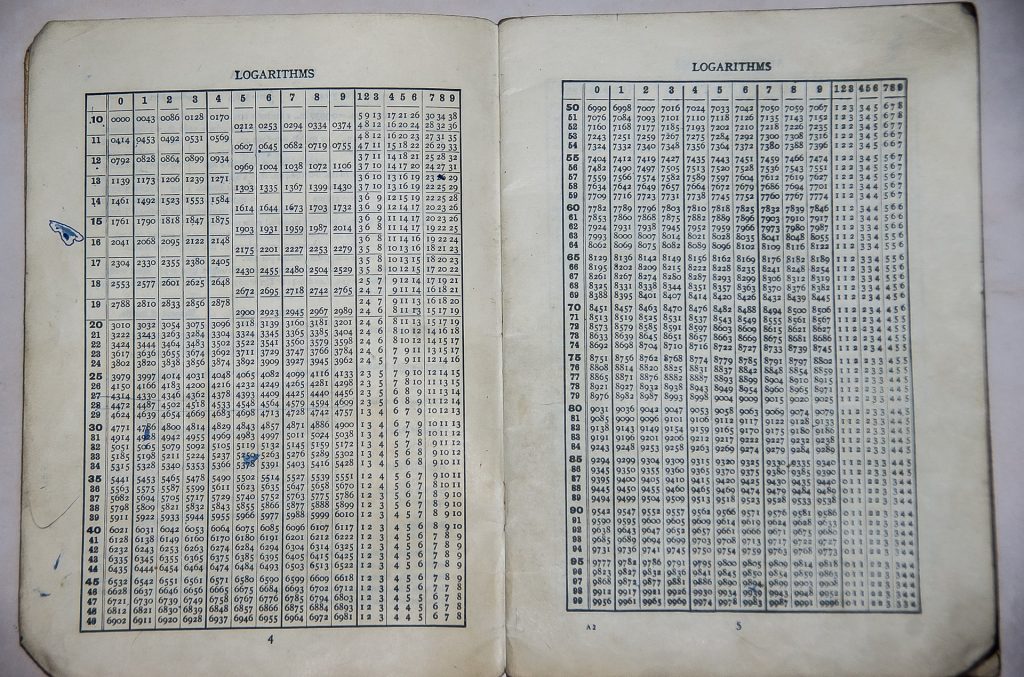 LOGARITHMS
0 1 2 3 4 5 6 7 8 9 1 2 3 4 5 6 7 8 9
10 0000 0043 0086 0128 0170 5 9 13 17 21 26 30 34 38
0212 0253 0294 0334 0374 4 8 12 16 20 24 28 32 36
11 0414 0453 0492 0531 0569 4 8 12 16 20 23 27 31 35
0607 0645 0682 0719 0755 4 7 11 15 18 22 26 29 33
12 0792 0828 0864 0899 0934 3 7 11 14 18 21 25 28 32
0969 1004 1038 1072 1106 3 7 10 14 17 20 24 27 31
13 1139 1173 1206 1239 1271 3 6 10 13 16 19 23 29
1303 1335 1367 1399 1430 3 7 10 13 16 19 22 25 29
14 1461 1492 1523 1553 1584 3 6 9 12 15 19 22 25 28
1614 1644 1673 1703 1732 3 6 9 12 14 17 20 23 26
15 1761 1790 1818 1847 1875 3 6 9 11 14 17 20 23 26
1903 1931 1959 1987 2014 3 6 8 11 14 17 19 22 25
16 2041 2068 2095 2122 2148 3 6 8 11 14 16 19 22 24
2175 2201 2227 2253 2279 3 5 8 10 13 16 18 21 23
17 2304 2330 2355 2380 2405 3 5 8 10 13 15 18 20 23
2430 2455 2480 2504 2529 3 5 8 10 12 15 17 20 22
18 2553 2577 2601 2625 2648 2 5 7 9 12 14 17 19 21
2672 2695 2718 2742 2765 2 4 7 9 11 14 16 18 21
19 2788 2810 2833 2856 2878 2 4 7 9 11 13 16 18 20
2900 2923 2945 2967 2989 2 4 6 8 11 13 15 17 19
20 3010 3032 3054 3075 3096 3118 3139 3160 3181 3201 2 4 6 8 11 13 15 17 19
21 3222 3243 3263 3284 3304 3324 3345 3365 3385 3404 2 4 6 8 10 12 14 16 18
22 3424 3444 3464 3483 3502 3522 3541 3560 3579 3598 2 4 6 8 10 12 14 15 17
23 3617 3636 3655 3674 3692 3711 3729 3747 3766 3784 2 4 6 7 9 11 13 15 17
24 3802 3820 3838 3856 3874 3892 3909 3927 3945 3962 2 4 5 7 9 11 12 14 16
25 3979 3997 4014 4031 4048 4065 4082 4099 4116 4133 2 3 5 7 9 10 12 14 15
26 4150 4166 4183 4200 4216 4232 4249 4265 4281 4298 2 3 5 7 8 10 11 13 15
27 4314 4330 4346 4362 4378 4393 4409 4425 4440 4456 2 3 5 6 8 9 11 13 14
28 4472 4487 4502 4518 4533 4548 4564 4579 4594 4609 2 3 5 6 8 9 11 12 14
29 4624 4639 4654 4669 4683 4698 4713 4728 4742 4757 1 3 4 6 7 9 10 12 13
30 4771 4786 4800 4814 4829 4843 4857 4871 4886 4900 1 3 4 6 7 9 10 11 13
31 4914 4928 4942 4955 4969 4983 4997 5011 5024 5038 1 3 4 6 7 8 10 11 12
32 5051 5065 5079 5092 5105 5119 5132 5145 5159 5172 1 3 4 5 7 8 9 11 12
33 5185 5198 5211 5224 5237 5250 5263 5276 5289 5302 1 3 4 5 6 8 9 10 12
34 5315 5328 5340 5353 5366 5378 5391 5403 5416 5428 1 3 4 5 6 8 9 10 11
35 5441 5453 5465 5478 5490 5502 5514 5527 5539 5551 1 2 4 5 6 7 9 10 11
36 5563 5575 5587 5599 5611 5623 5635 5647 5658 5670 1 2 4 5 6 7 8 10 11
37 5682 5694 5705 5717 5729 5740 5752 5763 5775 5786 1 2 3 5 6 7 8 9 10
38 5798 5809 5821 5832 5843 5855 5866 5877 5888 5899 1 2 3 5 6 7 8 9 10
39 5911 5922 5933 5944 5955 5966 5977 5988 5999 6010 1 2 3 4 5 7 8 9 10
40 6021 6031 6042 6053 6064 6075 6085 6096 6107 6117 1 2 3 4 5 6 8 9 10
41 6128 6138 6149 6160 6170 6180 6191 6201 6212 6222 1 2 3 4 5 6 7 8 9
42 6232 6243 6253 6263 6274 6284 6294 6304 6314 6325 1 2 3 4 5 6 7 8 9
43 6335 6345 6355 6365 6375 6385 6395 6405 6415 6425 1 2 3 4 5 6 7 8 9
44 6435 6444 6454 6464 6474 6484 6493 6503 6513 6522 1 2 3 4 5 6 7 8 9
45 6532 6542 6551 6561 6571 6580 6590 6599 6609 6618 1 2 3 4 5 6 7 8 9
46 6628 6637 6646 6656 6665 6675 6684 6693 6702 6712 1 2 3 4 5 6 7 7 8
47 6721 6730 6739 6749 6758 6767 6776 6785 6794 6803 1 2 3 4 5 5 6 7 8
48 6812 6821 6830 6839 6848 6857 6866 6875 6884 6893 1 2 3 4 4 5 6 7 8
49 6902 6911 6920 6928 6937 6946 6955 6964 6972 6981 1 2 3 4 4 5 6 7 8
4
LOGARITHMS
0 1 2 3 4 5 6 7 8 9 1 2 3 4 5 6 7 8 9
50 6990 6998 7007 7016 7024 7033 7042 7050 7059 7067 1 2 3 3 4 5 6 7 8
51 7076 7084 7093 7101 7110 7118 7126 7135 7143 7152 1 2 3 3 4 5 6 7 8
52 7160 7168 7177 7185 7193 7202 7210 7218 7226 7235
53 7243 7251 7259 7267 7275 7284 7292 7300 7308 7316
54 7324 7332 7340 7348 7356 7364 7372 7380 7388 7396
55 7404 7412 7419 7427 7435 7443 7451 7459 7466 7474
56 7482 7490 7497 7505 7513 7520 7528 7536 7543 7551
57 7559 7566 7574 7582 7589 7597 7604 7612 7619 7627
58 7634 7642 7649 7657 7664 7672 7679 7686 7694 7701
59 7709 7716 7723 7731 7738 7745 7752 7760 7767 7774
60 7782 7789 7796 7803 7810 7818 7825 7832 7839 7846
61 7853 7860 7868 7875 7882 7889 7896 7903 7910 7917
62 7924 7931 7938 7945 7952 7959 7966 7973 7980 7987
63 7993 8000 8007 8014 8021 8028 8035 8041 8048 8055
64 8062 8069 8075 8082 8089 8096 8102 8109 8116 8122
65 8129 8136 8142 8149 8156 8162 8169 8176 8182 8189
66 8195 8202 8209 8215 8222 8228 8235 8241 8248 8254
67 8261 8267 8274 8280 8287 8293 8299 8306 8312 8319
68 8325 8331 8338 8344 8351 8357 8363 8370 8376 8382
69 8388 8395 8401 8407 8414 8420 8426 8432 8439 8445
70 8451 8457 8463 8470 8476 8482 8488 8494 8500 8506
71 8513 8519 8525 8531 8537 8543 8549 8555 8561 8567
72 8573 8579 8585 8591 8597 8603 8609 8615 8621 8627
73 8633 8639 8645 8651 8657 8663 8669 8675 8681 8686
74 8692 8698 8704 8710 8716 8722 8727 8733 8739 8745
75 8751 8756 8762 8768 8774 8779 8785 8791 8797 8802
76 8808 8814 8820 8825 8831 8837 8842 8848 8854 8859
77 8865 8871 8876 8882 8887 8893 8899 8904 8910 8915
78 8921 8927 8932 8938 8943 8949 8954 8960 8965 8971
79 8976 8982 8987 8993 8998 9004 9009 9015 9020 9025
80 9031 9036 9042 9047 9053 9058 9063 9069 9074 9079
81 9085 9090 9096 9101 9106 9112 9117 9122 9128 9133
82 9138 9143 9149 9154 9159 9165 9170 9175 9180 9186
83 9191 9196 9201 9206 9212 9217 9222 9227 9232 9238
84 9243 9248 9253 9258 9263 9269 9274 9279 9284 9289
85 9294 9299 9304 9309 9315 9320 9325 9330 9335 9340
86 9345 9350 9355 9360 9365 9370 9375 9380 9385 9390
87 9395 9400 9405 9410 9415 9420 9425 9430 9435 9440
88 9445 9450 9455 9460 9465 9469 9474 9479 9484 9489
89 9494 9499 9504 9509 9513 9518 9523 9528 9533 9538
90 9542 9547 9552 9557 9562 9566 9571 9576 9581 9586
91 9590 9595 9600 9605 9609 9614 9619 9624 9628 9633
92 9638 9643 9647 9652 9657 9661 9666 9671 9675 9680
93 9685 9689 9694 9699 9703 9708 9713 9717 9722 9727
94 9731 9736 9741 9745 9750 9754 9759 9763 9768 9773
95 9777 9782 9786 9791 9795 9800 9805 9809 9814 9818
96 9823 9827 9832 9836 9841 9845 9850 9854 9859 9863
97 9868 9872 9877 9881 9886 9890 9894 9899 9903 9908
98 9912 9917 9921 9926 9930 9934 9939 9943 9948 9952
99 9956 9961 9965 9969 9974 9978 9983 9987 9991 9996
A 2
5